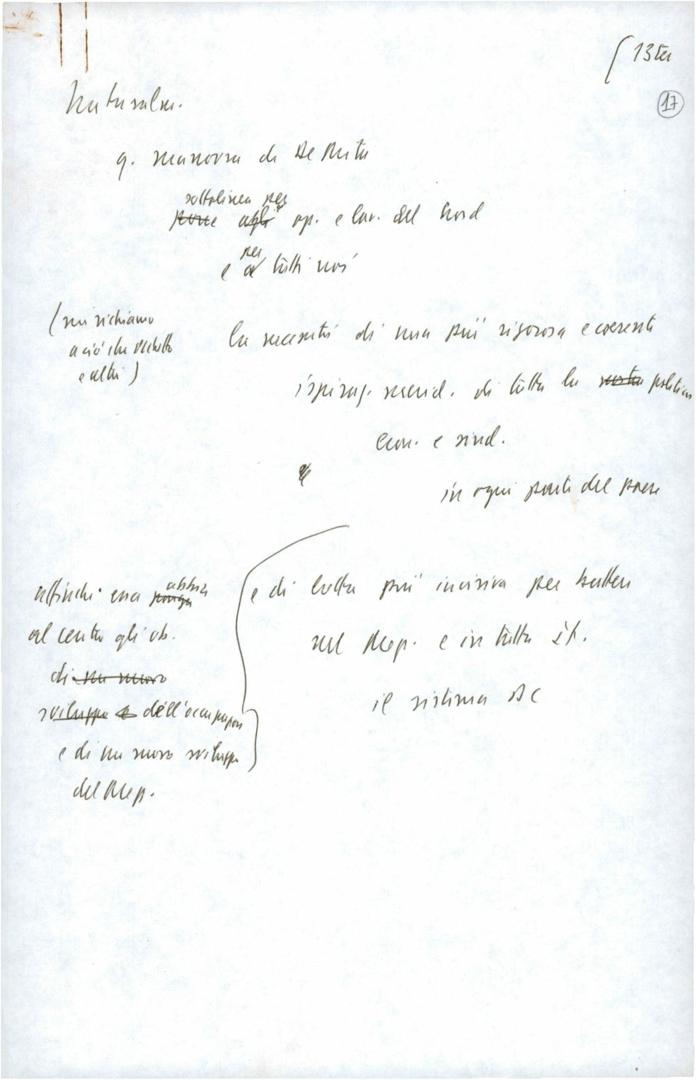 13ter
17
Naturalm.
q. manovra di De Mita
sottolinea per
porre agli op. e lav. del Nord
per
e a tutti noi
(mi richiamo
a ciò che
e altri)
la necessità di una più rigorosa e coerente
ispiraz. merid. di tutta la nostra politica
econ. e sind.
in ogni parte del paese
e di lotta più incisiva per battere
nel Mezz. e in tutta It.
il sistema DC
affinché essa abbia
ponga
al centro gli ob.
di un nuovo
sviluppo e dell'occupazione
e di un nuovo sviluppo
del Mezz.